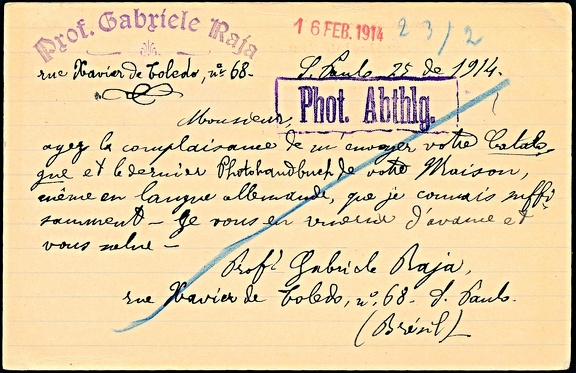 Prof. Gabriele Raja
16 FEB. 1914
23/2
rue Xavier de Toledo, nº 68-
S. Paulo 25 de 1914.
Phot. Abthlg.
Monsieur,
ayez la complaisance de m'envoyer votre Catalo-
gue et le dernier Photohandbuch de votre Maison,
même en langue allemande, que je connais suffi-
samment - Je vous en remercie d'avance et
vous salue -
Prof. Gabriele Raja,
rue Xavier de Toledo, nº 68- S. Paulo.
(Brésil)